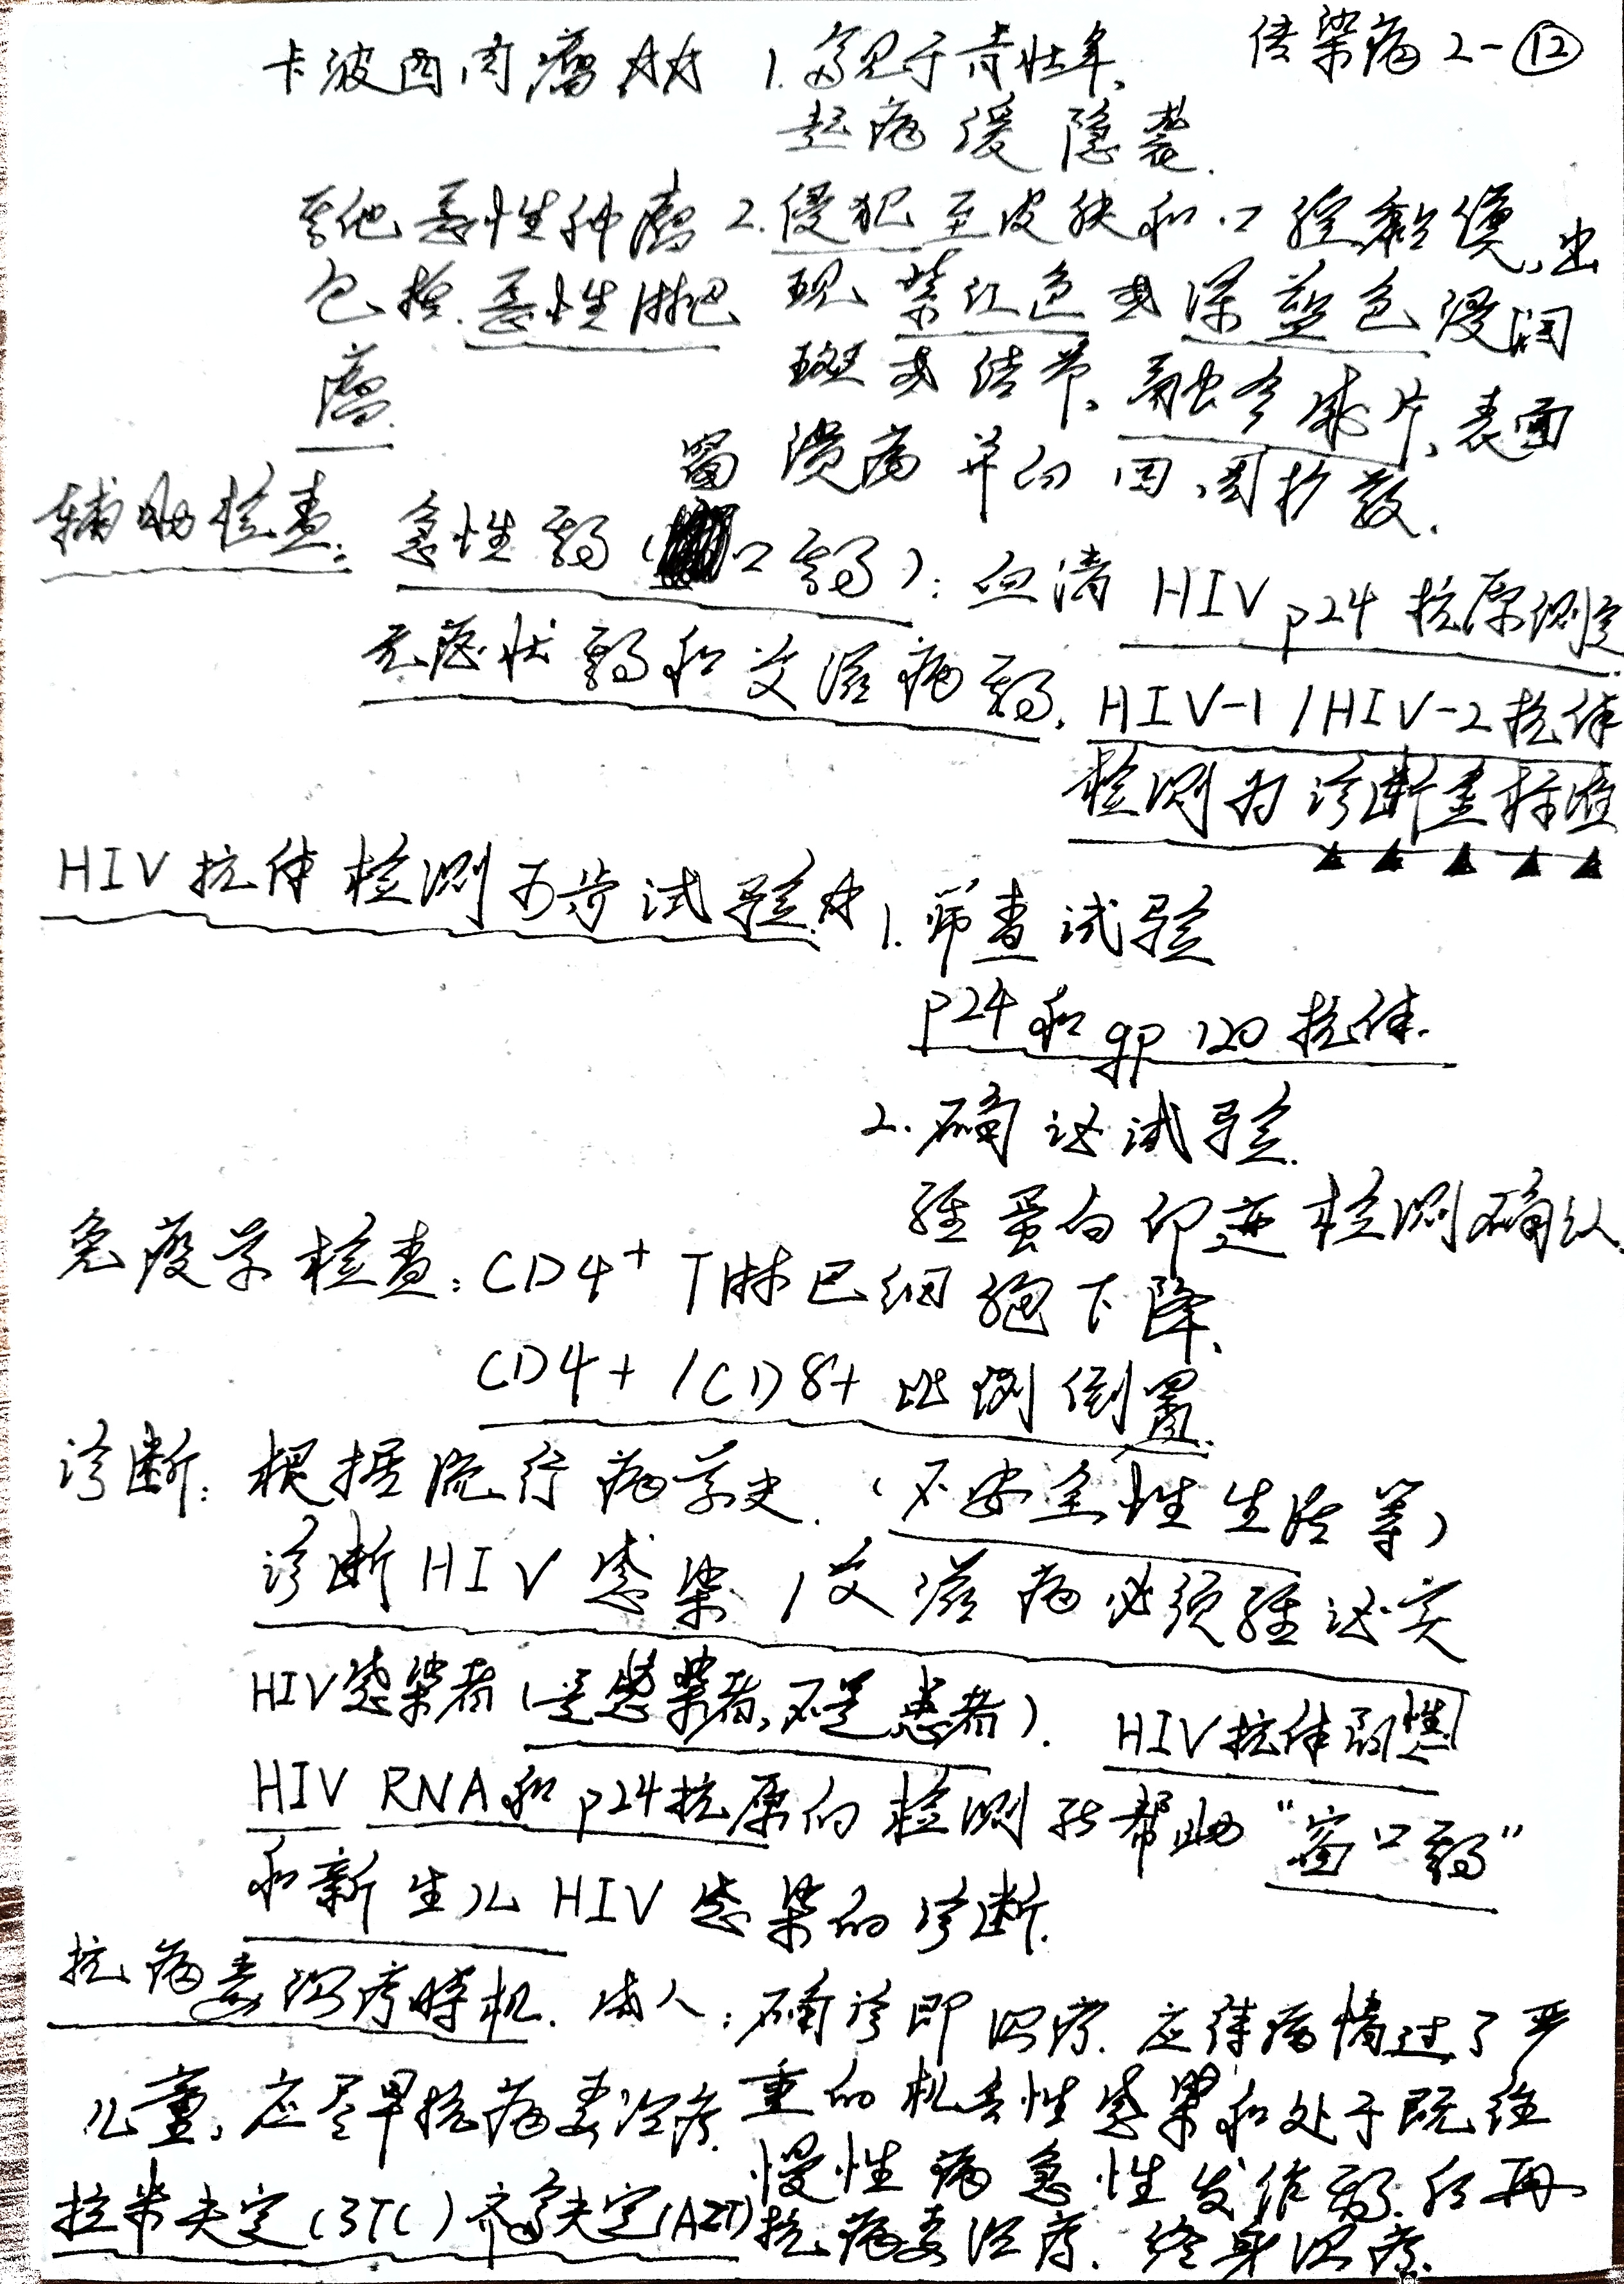 传染病 2-⑫
卡波西肉瘤☆☆ 1. 多见于青壮年、
起病缓 隐袭.
其他恶性肿瘤 2. 侵犯至皮肤和口腔黏膜, 出
包括. 恶性淋巴 现紫红色或深蓝色浸润
瘤. 斑或结节, 融合成片, 表面
溃疡并向四周扩散.
辅助检查: 急性期(窗口期): 血清 HIV p24 抗原测定
无症状期和艾滋病期. HIV-1/HIV-2抗体
检测为诊断金标准
▲▲▲▲▲
HIV抗体检测两步试验☆ 1. 筛查试验
p24和gp120抗体.
2. 确证试验.
经蛋白印迹检测确认.
免疫学检查: CD4⁺ T淋巴细胞下降、
CD4+/CD8+ 比例倒置.
诊断: 根据流行病学史. (不安全性生活等)
诊断HIV感染/艾滋病必须经证实
HIV感染者(是感染者, 不是患者). HIV抗体阳性
HIV RNA和p24抗原的检测能帮助“窗口期”
和新生儿HIV感染的诊断.
抗病毒治疗时机. 成人: 确诊即治疗. 应待病情过了严
儿童, 应尽早抗病毒治疗. 重的机会性感染和处于既往
慢性病急性发作期后再
拉米夫定(3TC) 齐多夫定(AZT) 抗病毒治疗. 终身治疗.